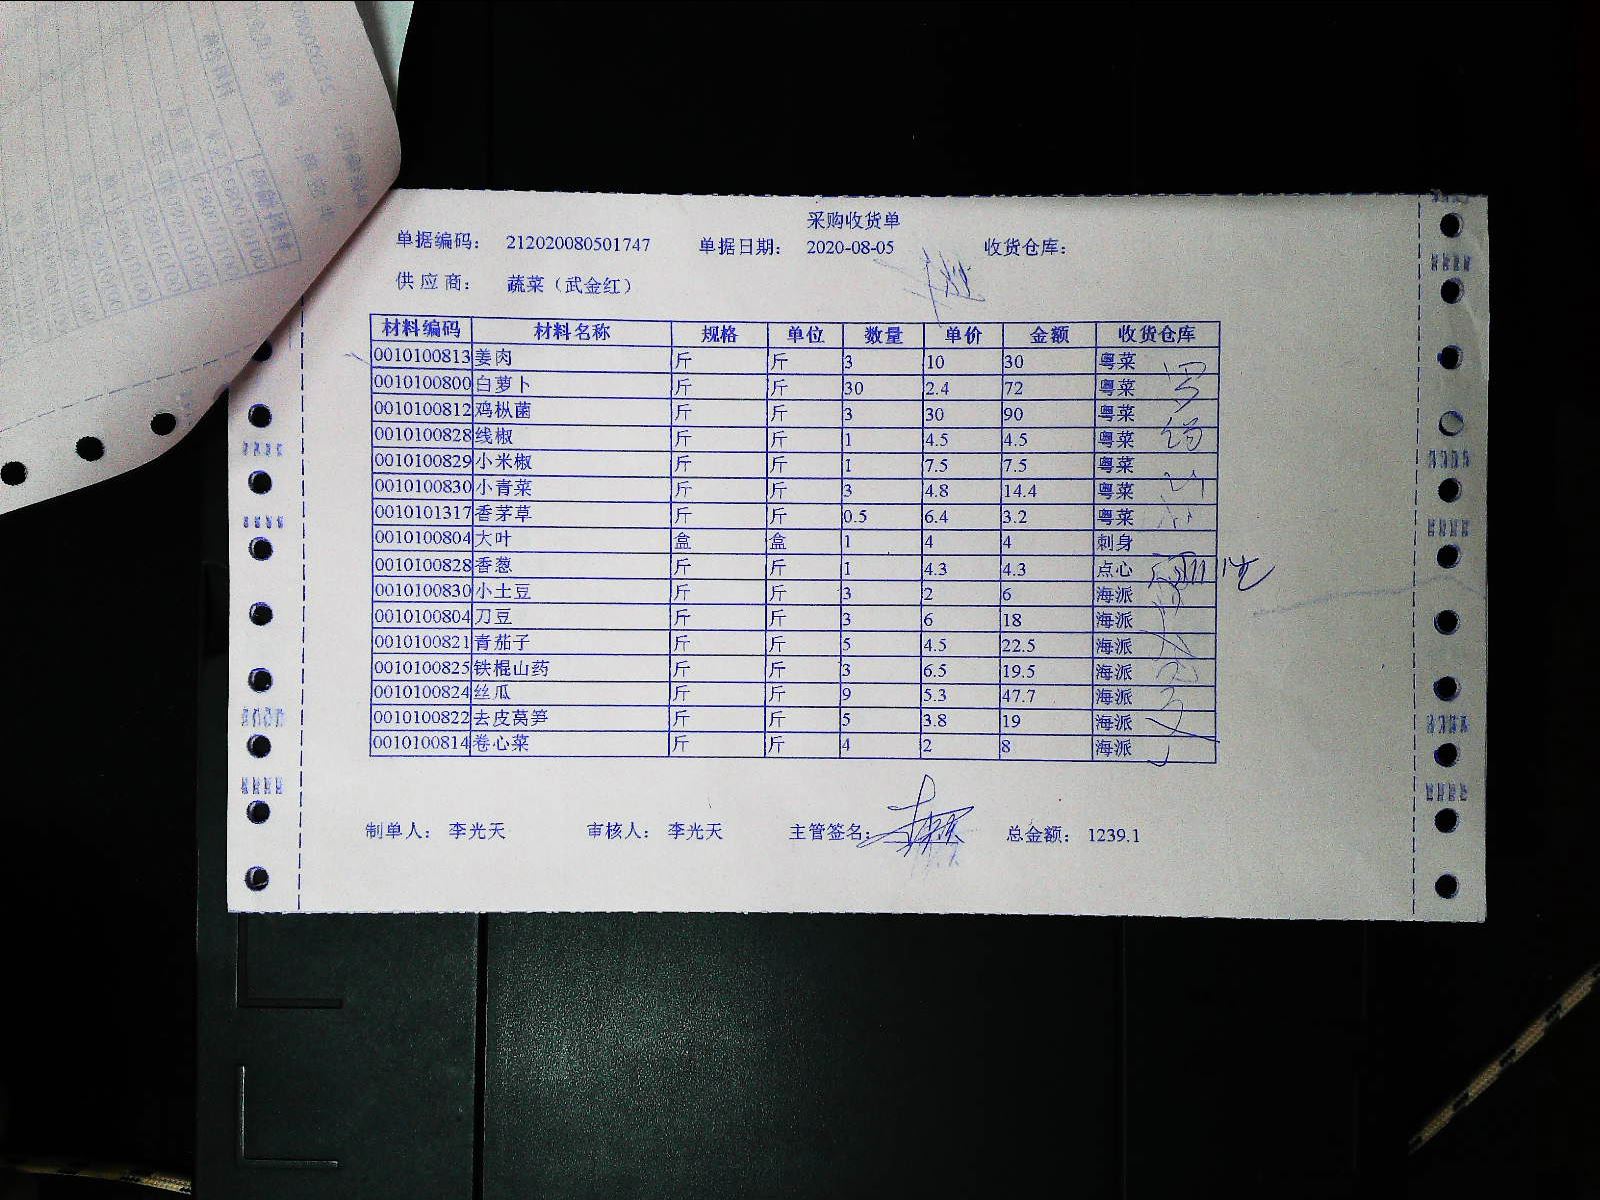 采购收货单
单据编码： 212020080501747 单据日期： 2020-08-05 收货仓库：
供应商： 蔬菜（武金红）
材料编码 材料名称 规格 单位 数量 单价 金额 收货仓库
0010100813 姜肉 斤 斤 3 10 30 粤菜
0010100800 白萝卜 斤 斤 30 2.4 72 粤菜
0010100812 鸡枞菌 斤 斤 3 30 90 粤菜
0010100828 线椒 斤 斤 1 4.5 4.5 粤菜
0010100829 小米椒 斤 斤 1 7.5 7.5 粤菜
0010100830 小青菜 斤 斤 3 4.8 14.4 粤菜
0010101317 香茅草 斤 斤 0.5 6.4 3.2 粤菜
0010100804 大叶 盒 盒 1 4 4 刺身
0010100828 香葱 斤 斤 1 4.3 4.3 点心
0010100830 小土豆 斤 斤 3 2 6 海派
0010100804 刀豆 斤 斤 3 6 18 海派
0010100821 青茄子 斤 斤 5 4.5 22.5 海派
0010100825 铁棍山药 斤 斤 3 6.5 19.5 海派
0010100824 丝瓜 斤 斤 9 5.3 47.7 海派
0010100822 去皮莴笋 斤 斤 5 3.8 19 海派
0010100814 卷心菜 斤 斤 4 2 8 海派
制单人： 李光天 审核人： 李光天 主管签名： 总金额： 1239.1